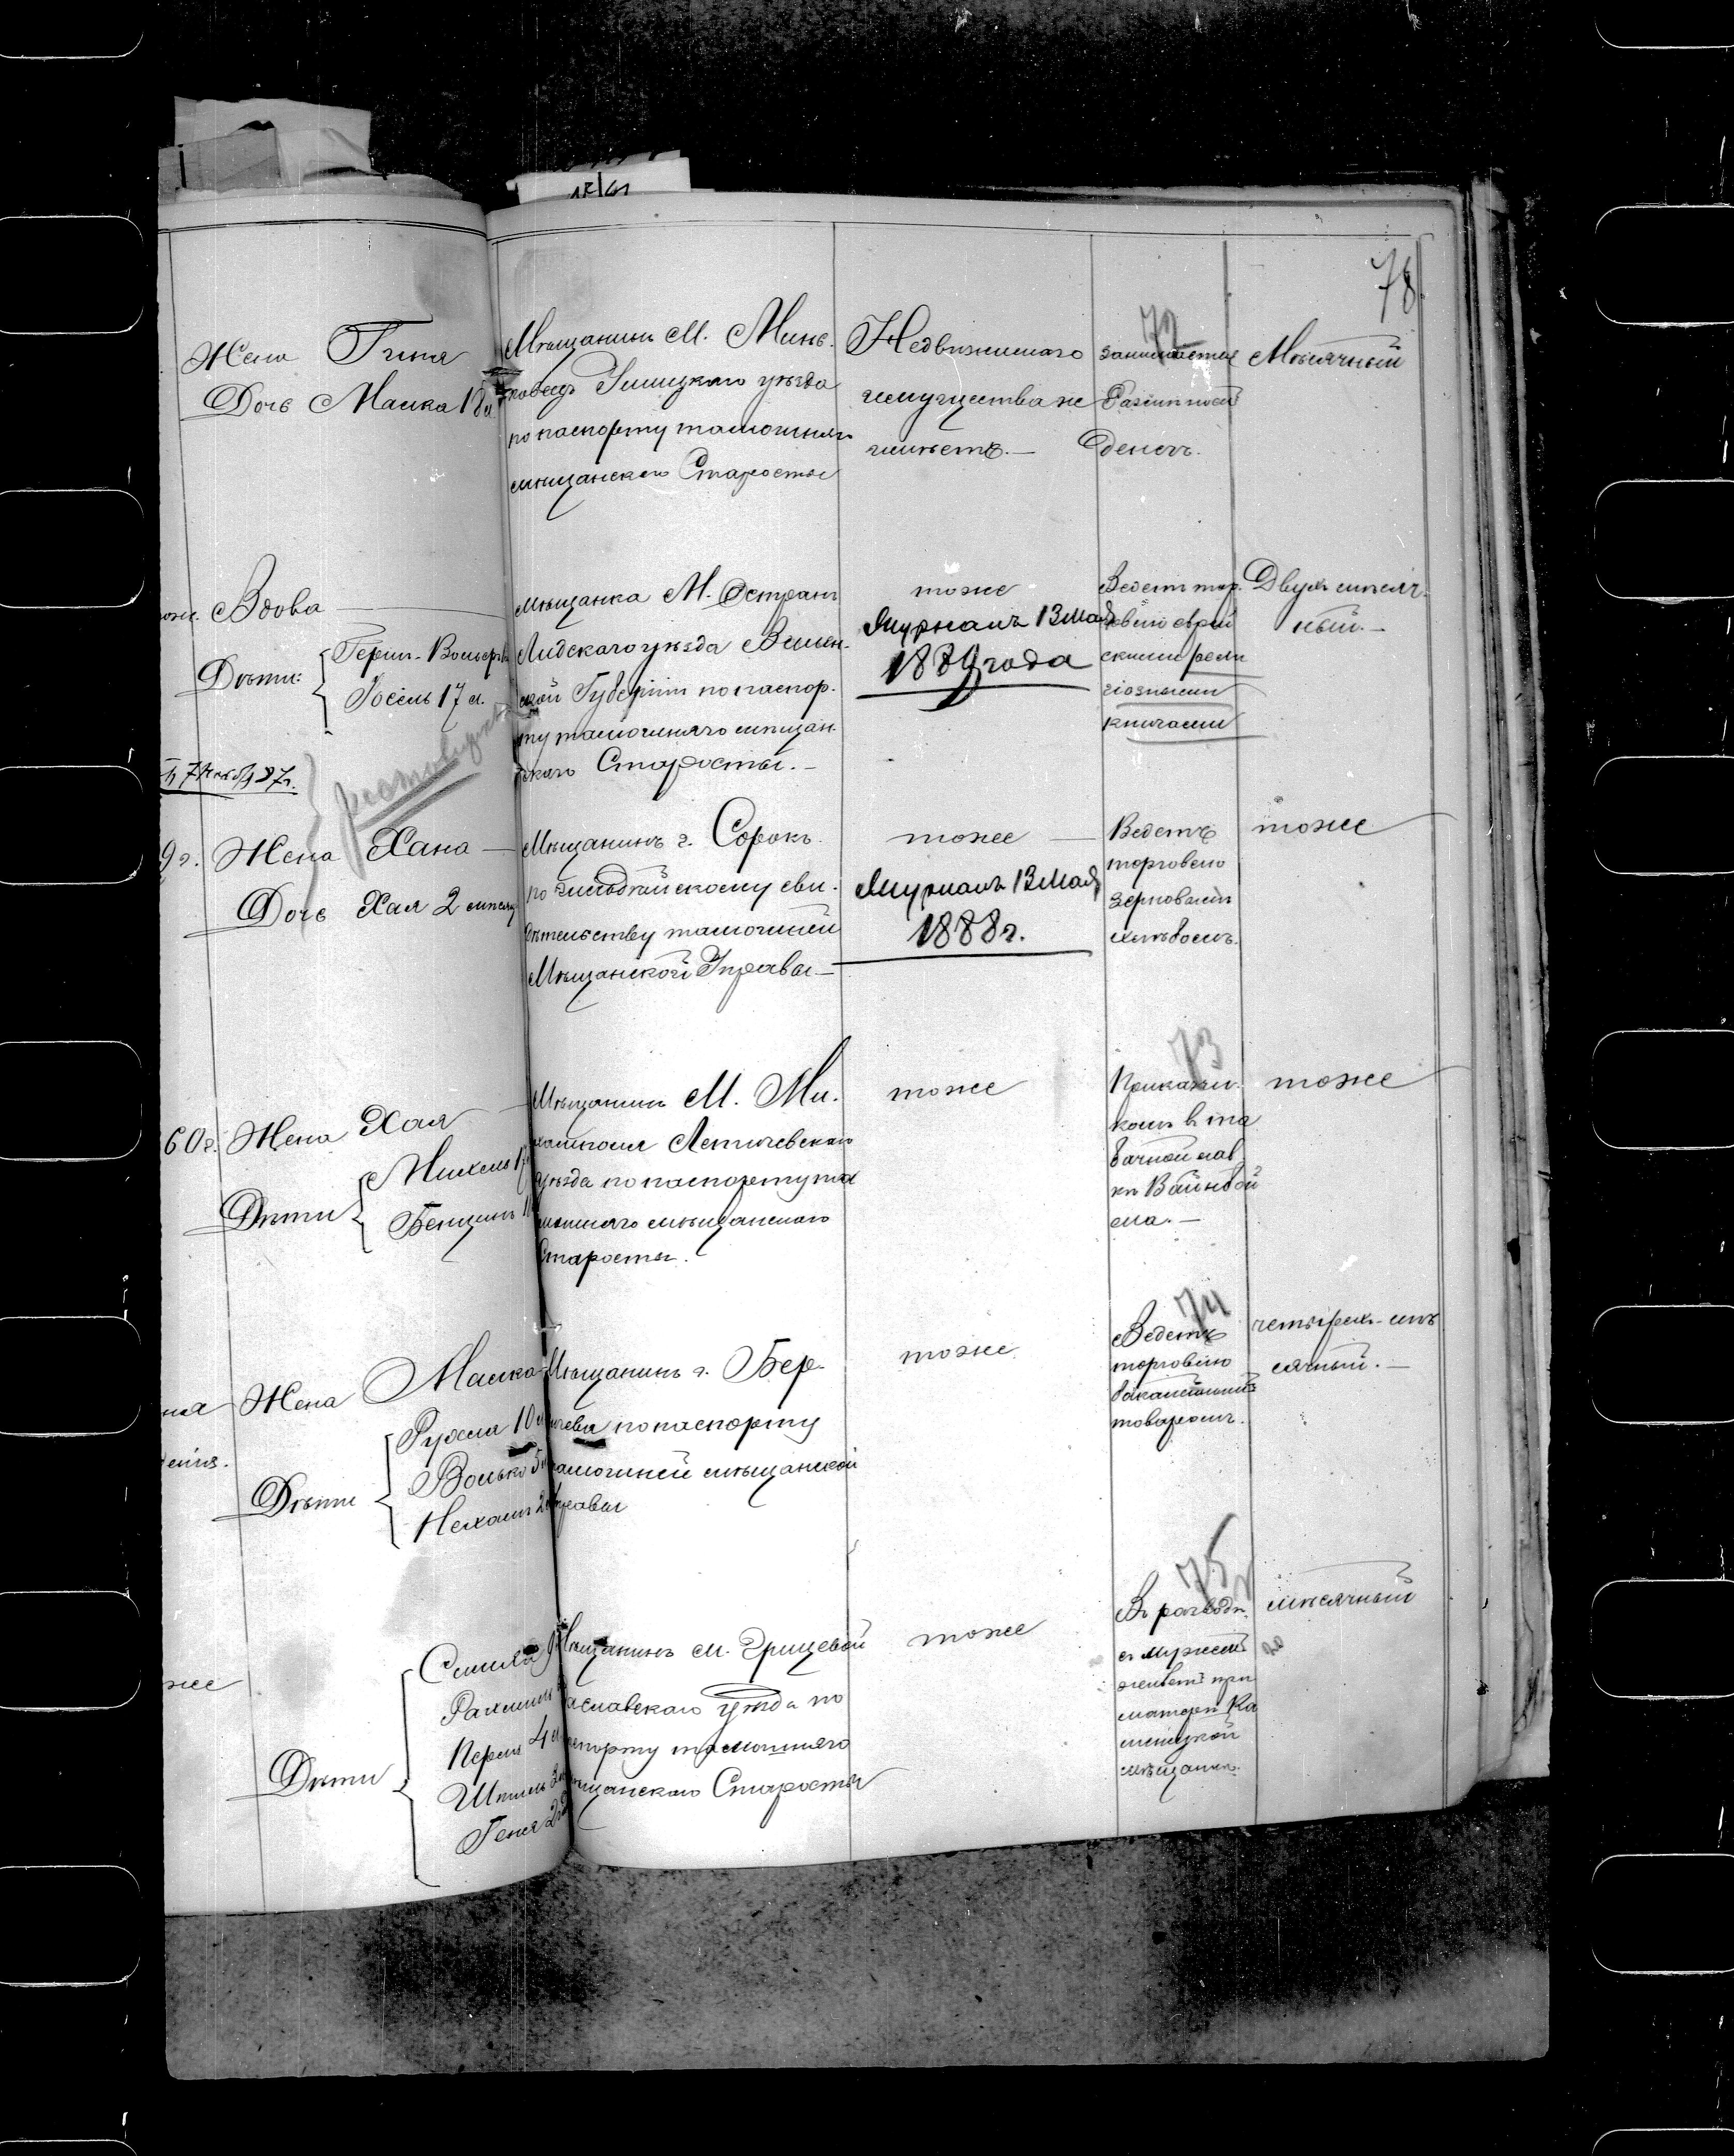 78
72
Жена Гития
Дочь Малка 18 л
Мѣщанинъ М. Минь-
ковецъ Ушицкаго уѣзда
по паспорту тамошняго
мѣщанскаго Старосты
Недвижимаго
имущества не
имѣетъ.—
занимается
денегъ.
Мѣсячный
Вдова
Дѣти:
Герш-Вольф
Іосель 17 л.
Мѣщанка М. Острин
Лидскаго уѣзда Вилен-
ской Губерніи по паспор-
ту тамошняго мѣщан-
скаго Старосты.—
тоже
Журналъ 13 Мая
1889 года
Ведет тор-
говлю еврей
скими рели
гіозными
книгами
Двухъ мѣсяч-
ный.—
9 г. Жена Хана —
Дочь Хая 2 мѣсяц
Мѣщанинъ г. Сорокъ
по сви-
дѣтельству тамошней
Мѣщанской Управы—
тоже —
Журналъ 13 Мая
1888 г.
Ведетъ
торговлю
зерновымъ
хлѣбомъ.
тоже
60 г. Жена Хая
Дѣти
Михель
Бенцинъ
Мѣщанинъ М. Ми-
хамполя Летичевскаго
уѣзда по паспорту та
мошняго мѣщанскаго
Старосты.
тоже
73
Приказчи-
комъ в та
бачной лав
кѣ Вайнбой
ма.—
тоже
Жена Малка
Дѣти
Рухля 10 л
Волько 5 л
Нехамя 2
Мѣщанинъ г. Бер-
ичева по паспорту
тамошней мѣщанской
Управы
тоже
74
Ведетъ
торговлю
бакалейнымъ
товаромъ.
четырех-мѣ
сячный.—
же
Дѣти
Рахмиль
Перля 4 л
Геня 2
Мѣщанинъ М. Грицевой
Заславскаго уѣзда по
паспорту тамошняго
мѣщанскаго Старосты
тоже
75
Въ разводѣ
съ мужем
живет при
матери Ка
менецкой
мѣщанкѣ.
мѣсячный